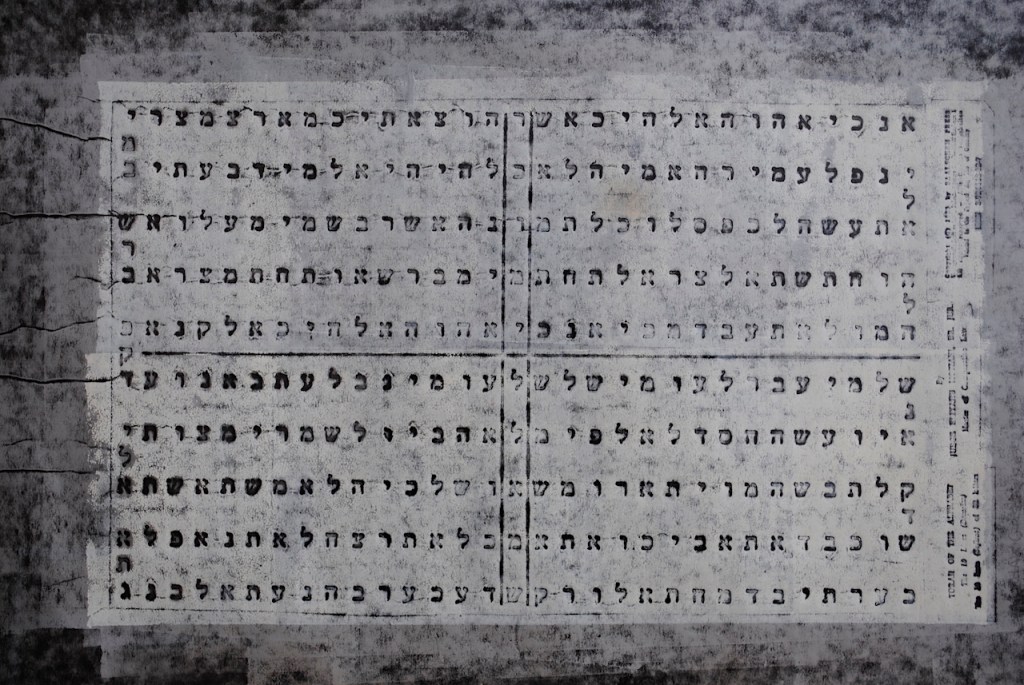 אנכיאהוהאלהיכאשרהוצאתיכמארצמצרי
מ
ינפלעמירחאמיהלאכלהיהיאלמידבעתיב
ל
אתעשהלכפסלוכלתמונהאשרבשמימעלואש
ר
הוחתשתאלצראלתחתמימברשאותחתמצראב
ל
המולאתעבדמכיאנכיאהוהאלהיכאלקנאפ
ק
שלמיעברלעומישלשלעומינבלעתבאנועד
נ
איועשהחסדלאלפימלאהביולשמרימצותי
ל
קלתבשהמויתארומשאושלכיהלאמשתאשתא
ד
שוכבדאתאביכואתאמכלאתרצהלאתנאפלא
ת
כערתיבדמחתאלורקשדעכערבהנעתאלבנג
TORAH OF THE ALPHABET